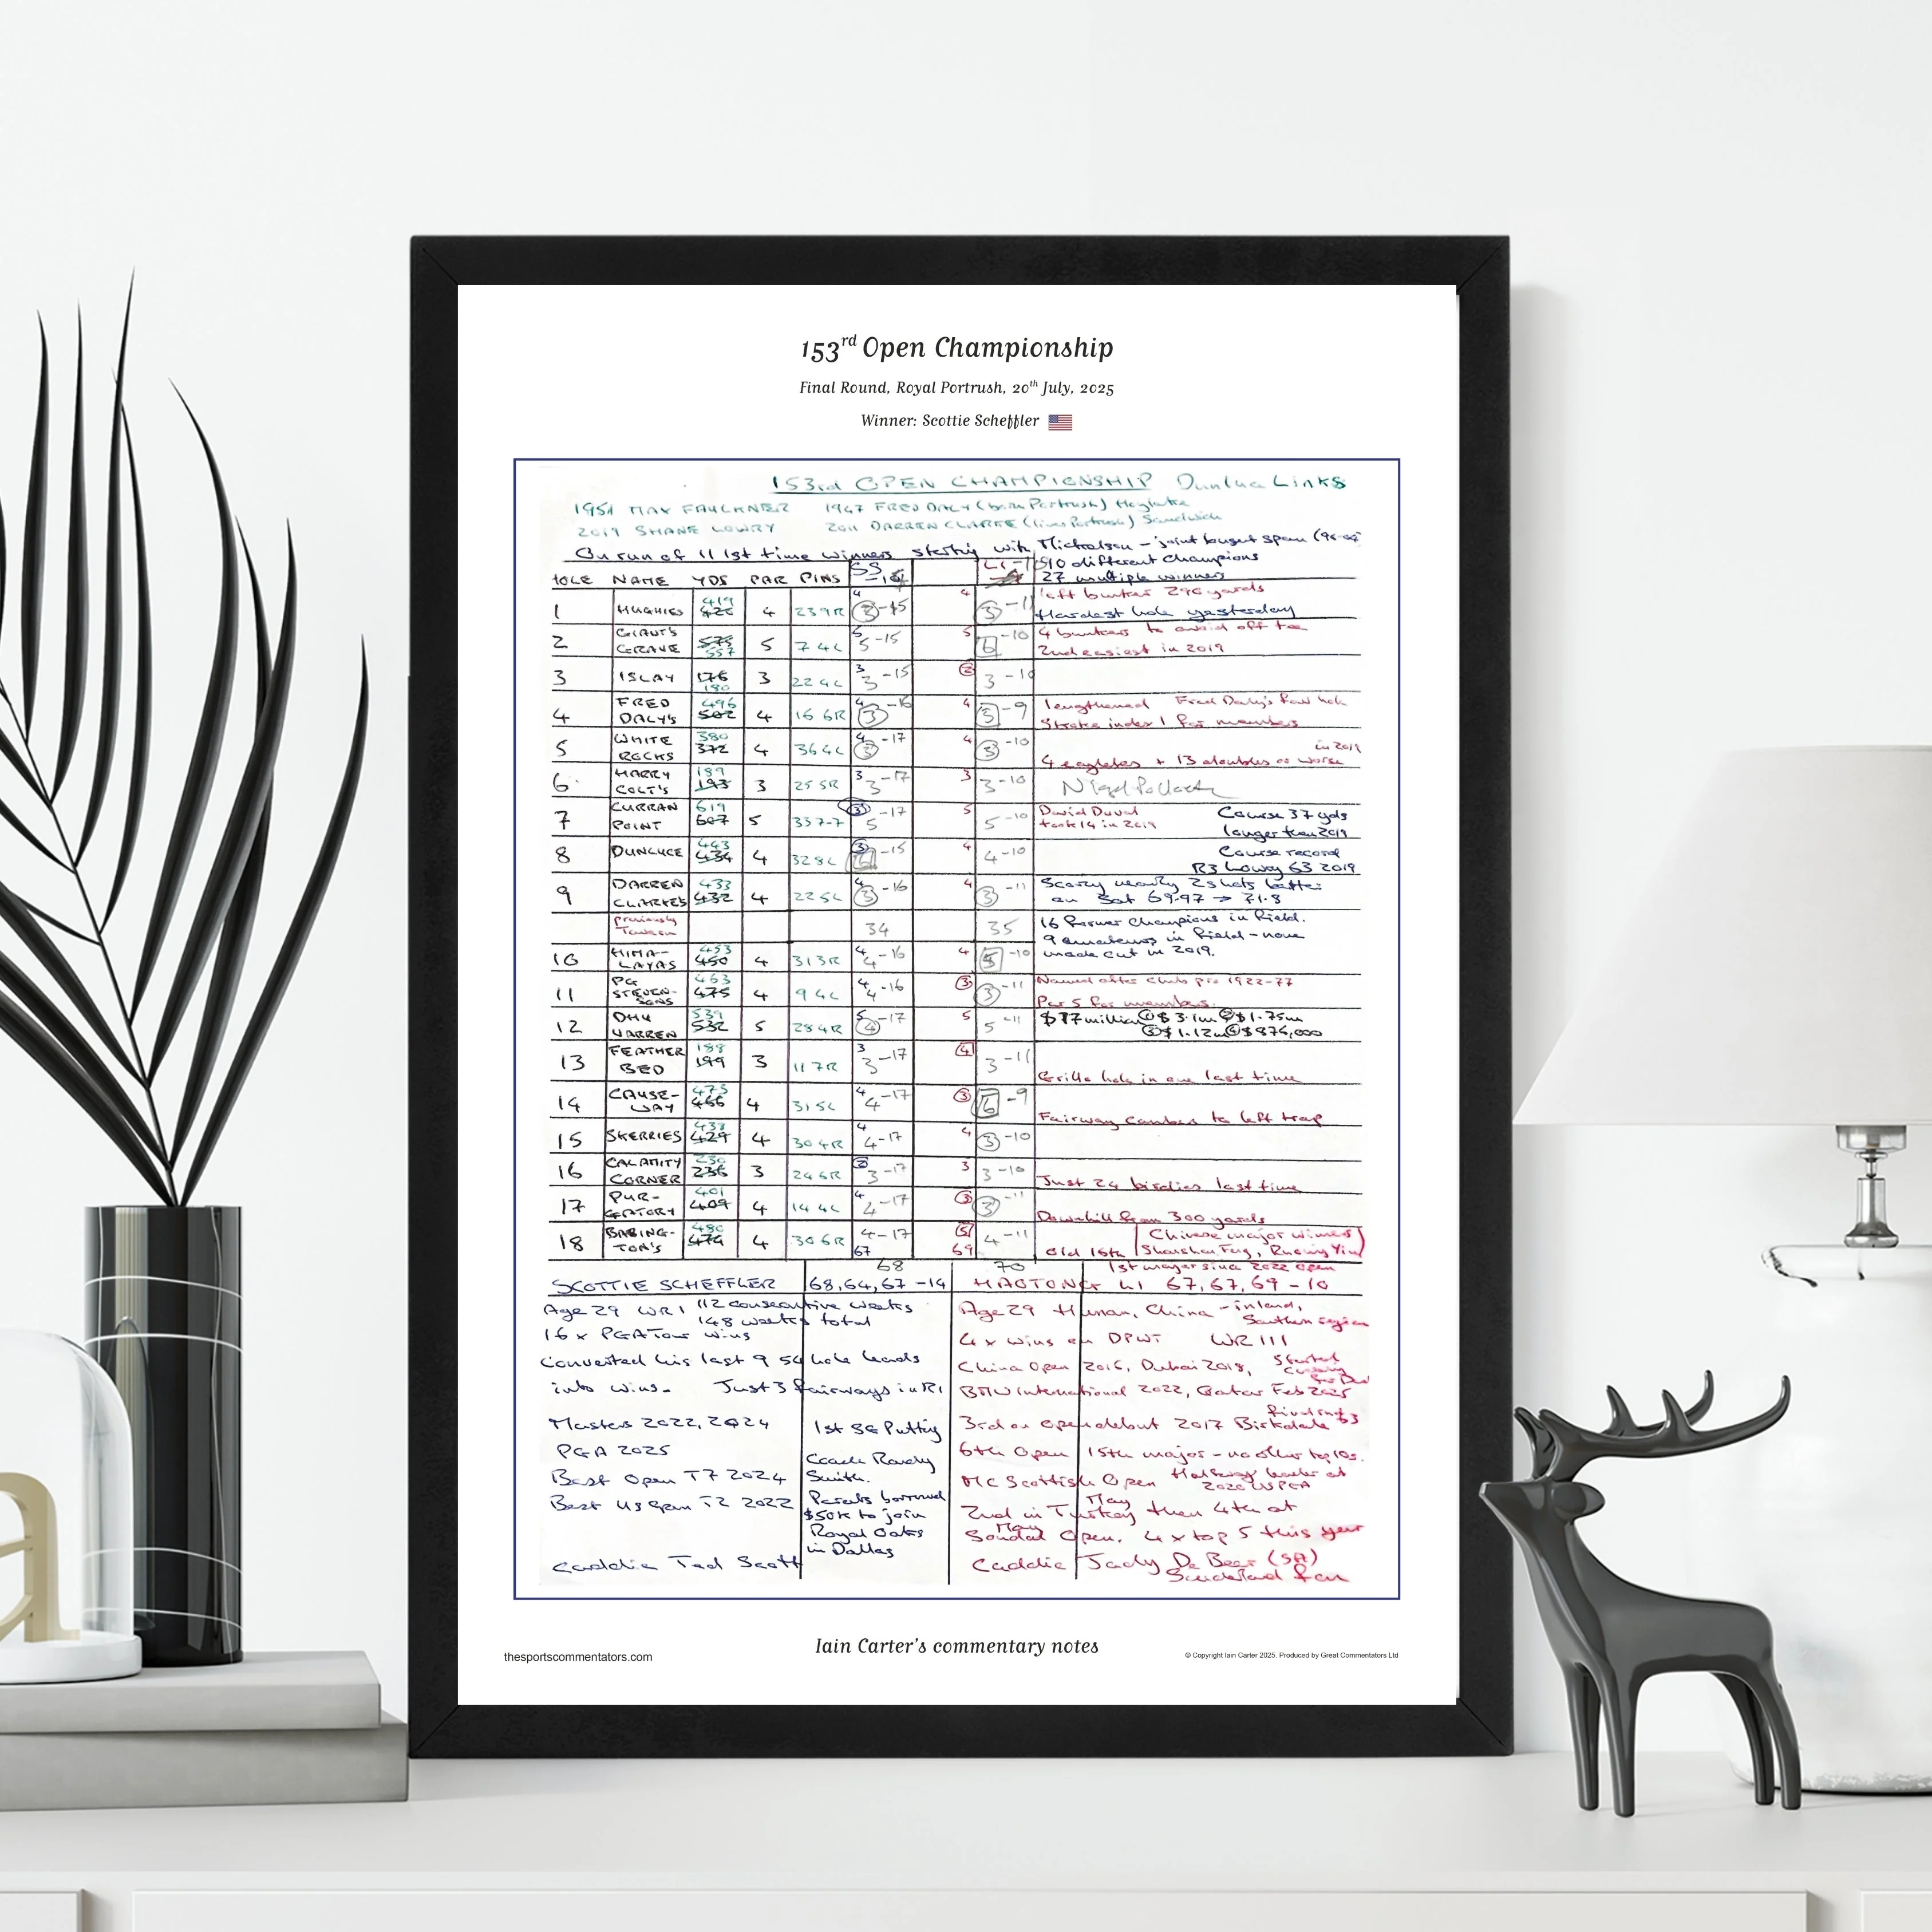 153rd Open Championship
Final Round, Royal Portrush, 20th July, 2025
Winner: Scottie Scheffler
153rd OPEN CHAMPIONSHIP Dunluce Links
1951 MAX FAULKNER 1947 FRED DALY (born Portrush) Hoylake
2019 SHANE LOWRY 2011 DARREN CLARKE (lives Portrush) Sandwich
On run of 11 1st time winners starting with Mickelson - joint longest span
SS LI 10 different champions
HOLE NAME YDS PAR PINS 27 multiple winners
1 HUGHIES 419 426 4 23 9R 4 3 -15 4 3 -11 left bunker 296 yards
Hardest hole yesterday
2 GIANT'S GRAVE 575 557 5 7 4L 5 5 -15 5 6 -10 4 bunkers to avoid off tee
2nd easiest in 2019
3 ISLAY 176 180 3 22 4L 3 3 -15 2 3 -10
4 FRED DALY'S 496 502 4 16 6R 4 3 -16 4 5 -9 lengthened Fred Daly's fav hole
Stroke index 1 for members
5 WHITE ROCKS 380 372 4 36 4L 4 3 -17 4 3 -10 in 2019
4 eagles + 13 doubles or worse
6 HARRY COLT'S 189 193 3 25 5R 3 3 -17 3 3 -10
7 CURRAN POINT 619 607 5 33 7-7 3 5 -17 5 5 -10 David Duval took 14 in 2019 Course 37 yds longer than 2019
8 DUNLUCE 443 434 4 32 8L 3 6 -15 4 4 -10 Course record
R3 Lowry 63 2019
9 DARREN CLARKE'S 433 432 4 22 5L 4 3 -16 4 3 -11 Scoring nearly 2 shots better
on Sat 69.97 → 71.8
previously 34 35 16 former champions in field.
9 amateurs in field - none
10 HIMALAYAS 453 450 4 31 3R 4 4 -16 4 5 -10 made cut in 2019.
11 PG STEVENSONS 463 475 4 9 4L 4 4 -16 3 3 -11 Named after club pro 1922-77
Par 5 for members.
12 DHU VARREN 539 532 5 28 4R 5 4 -17 5 5 -11 $17 million ① $3.1m ② $1.75m
③ $1.12m ④ $876,000
13 FEATHER BED 188 199 3 11 7R 3 3 -17 4 3 -11
Grillo hole in one last time
14 CAUSEWAY 475 466 4 31 5L 4 4 -17 3 6 -9
Fairway cambers to left trap
15 SKERRIES 433 429 4 30 4R 4 4 -17 4 3 -10
16 CALAMITY CORNER 230 236 3 24 6R 2 3 -17 3 3 -10
Just 24 birdies last time
17 PURGATORY 401 409 4 14 4L 4 4 -17 3 3 -11
Downhill from 300 yards
18 BABINGTON'S 480 474 4 30 6R 4 -17 5 4 -11 Chinese major winners
67 69 Old 16th Shanshan Feng, Ruoning Yin
68 70 1st major since 2022 Open
SCOTTIE SCHEFFLER 68, 64, 67 -14 HAOTONG LI 67, 67, 69 -10
Age 29 WR1 112 consecutive weeks Age 29 Hunan, China - inland,
148 weeks total Southern region
16 x PGA Tour wins 4 x wins on DPWT WR 111
Converted his last 9 54 hole leads China Open 2016, Dubai 2018, Started
into wins. Just 3 fairways in R1 BMW International 2022, Qatar Feb 2025
Masters 2022, 2024 1st SG Putting 3rd on Open debut 2017 Birkdale final rnd 63
PGA 2025 6th Open 15th major - no other top 10s.
Best Open T7 2024 Coach Randy Smith. MC Scottish Open Halfway leader at 2020 USPGA
Best US Open T2 2022 Parents borrowed 2nd in Turkey May then 4th at
$50K to join Soudal Open. May 4 x top 5 this year
Royal Oaks
in Dallas
Caddie Ted Scott Caddie Jady De Beer (SA)
Sunderland fan
Iain Carter's commentary notes
thesportscommentators.com
© Copyright Iain Carter 2025. Produced by Great Commentators Ltd